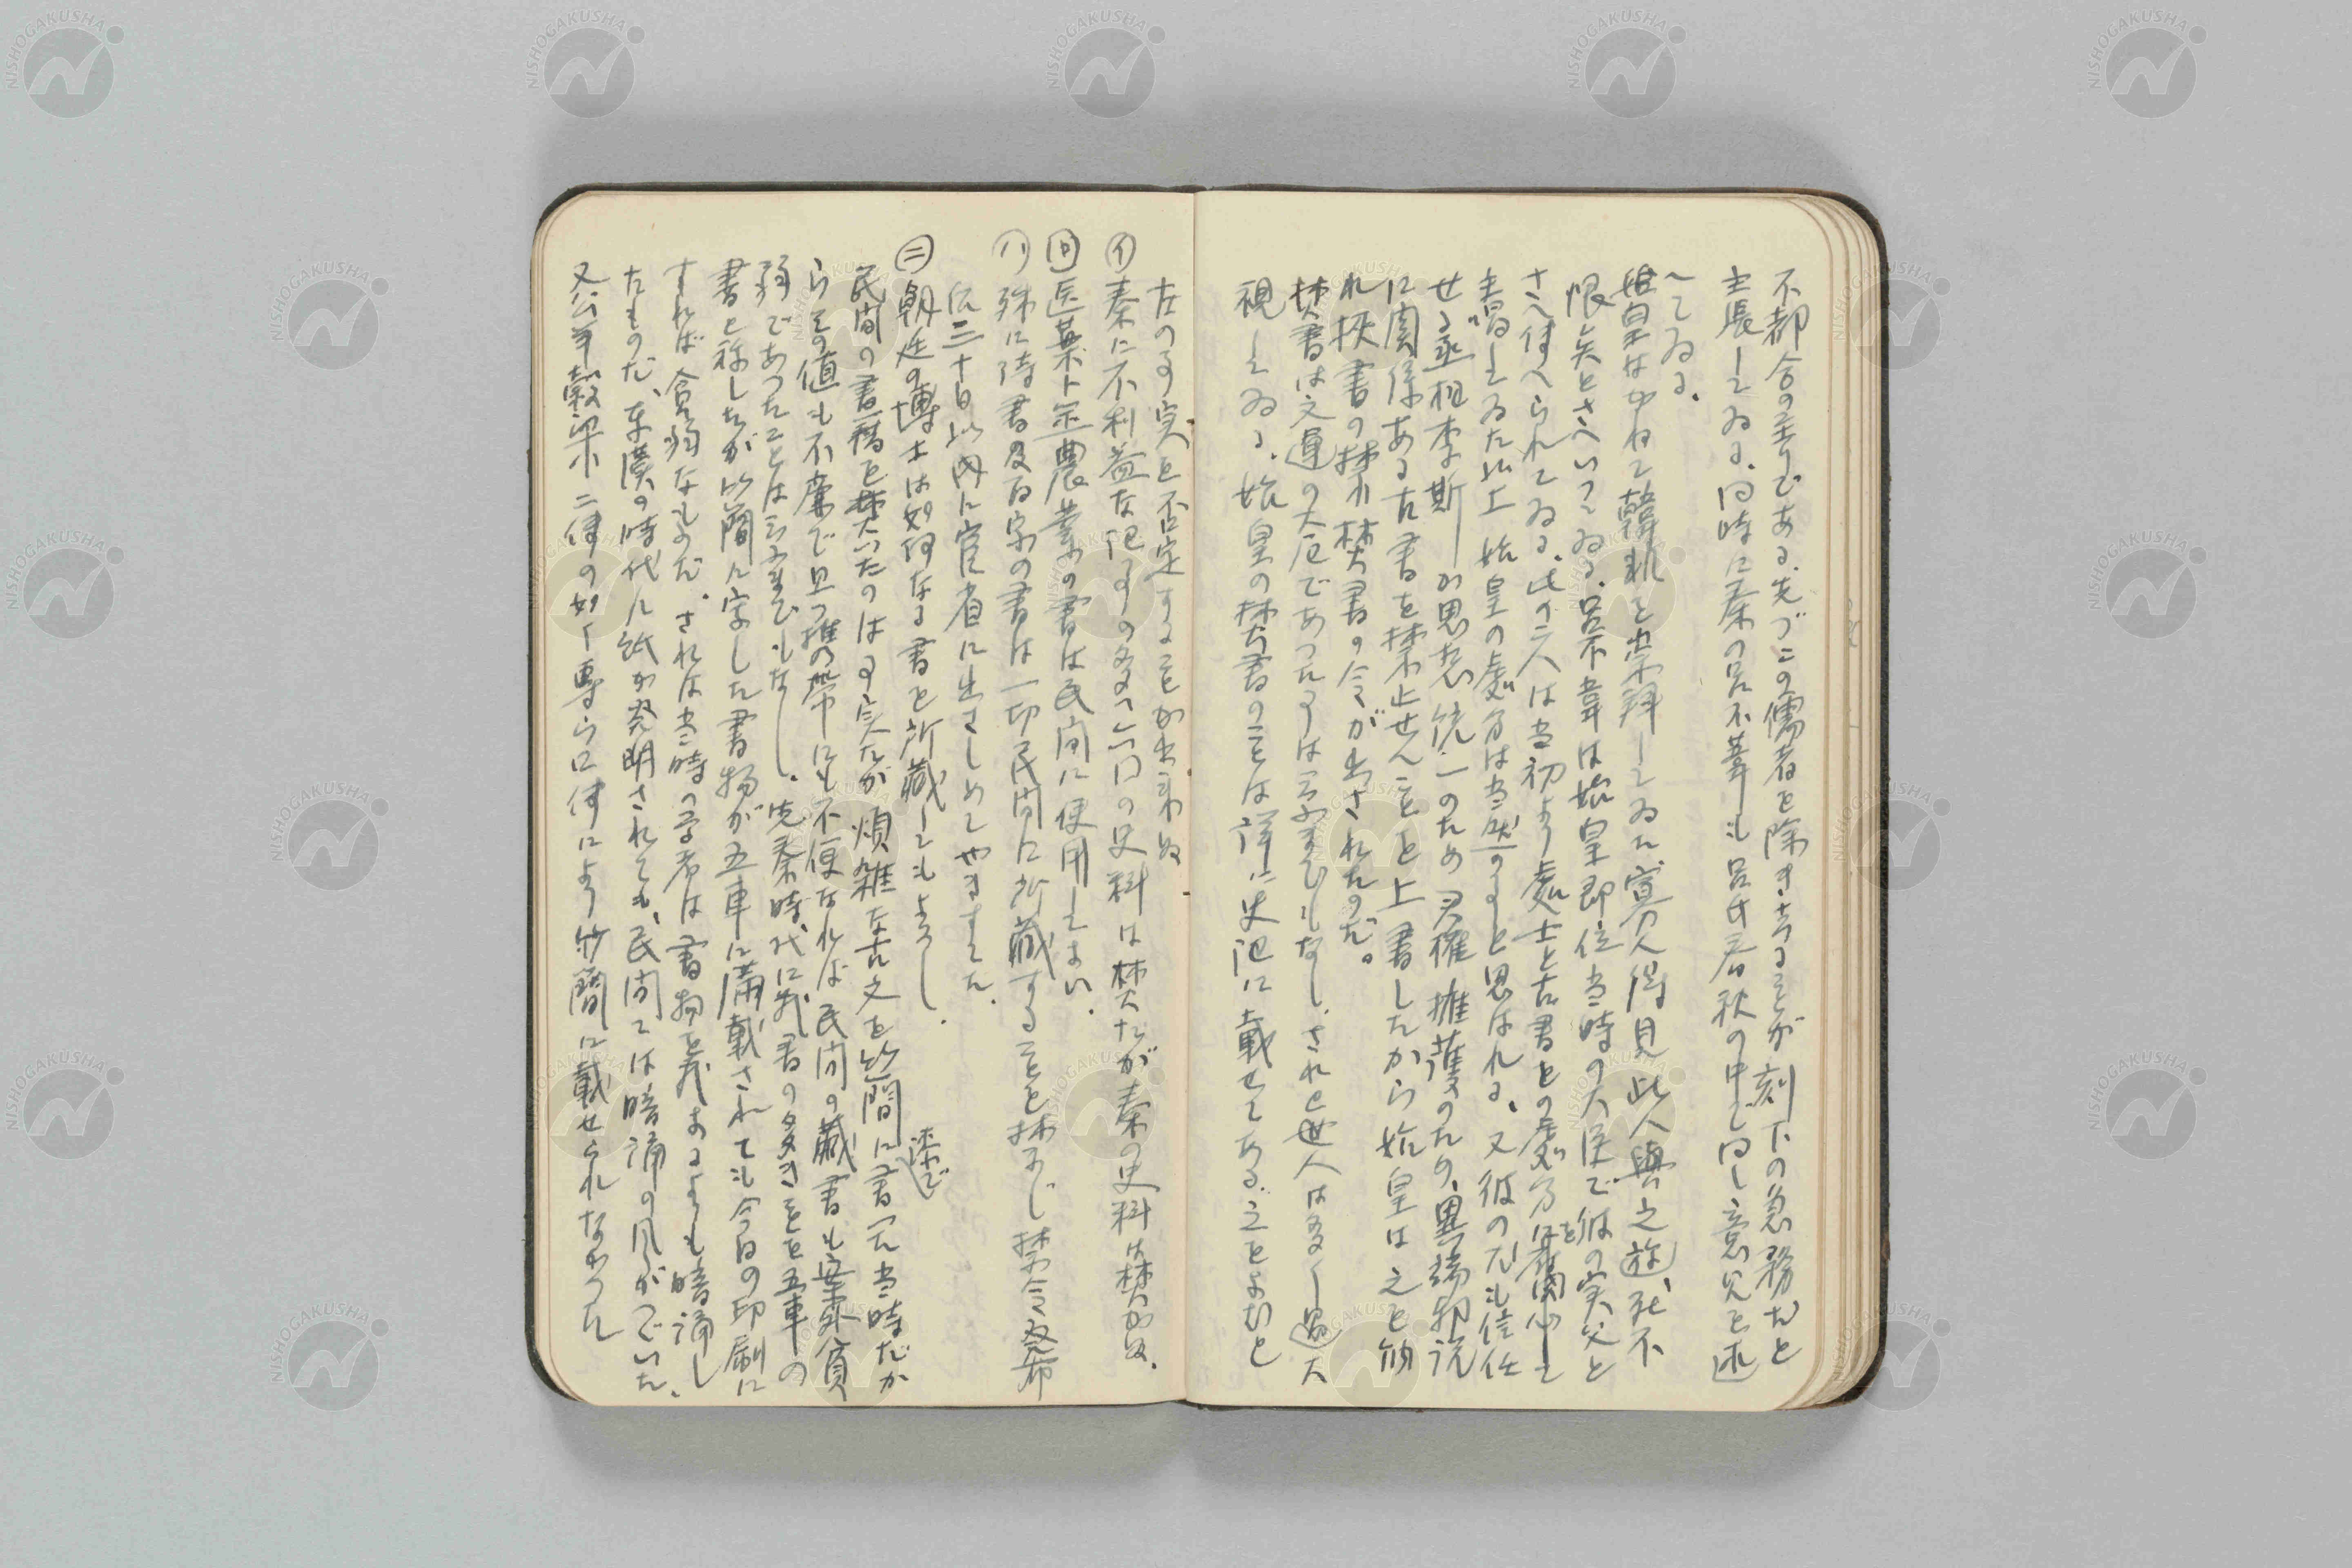 不都合の至りである、先づこの儒者を除き去ることが刻下の急務だと
主張してゐる、同時に秦の呂不韋も呂氏春秋の中で同し意見を述
へてゐる。
始皇はかねて韓非を崇拝してゐた、寡人得見此人與之遊、死不
恨矣とさへいつてゐる。呂不韋は始皇即位当時の大臣で彼の実父と
さへ伝へられてゐる、此の二人は当初より処士と古書との処分を関心して
主唱してゐた以上始皇の処分は当然のことと思はれる、又彼の尤も信任
せる丞相李斯が思想統一のため君権擁護のため、異端邪説
に関係ある古書を禁止せんことを上書したから始皇は之を納
れ挾書の禁が焚書の令が出されたのだ。
焚書は文運の大厄であつたことは云ふまでもなし、されど世人は多く過大
視してゐる、始皇の焚書のことは詳に史記に載せてある、之をよむと
左の事実を否定することが出来ぬ
㋑秦に不利益な記事の多い六国の史料は焚たが秦の史料は焚かぬ、
㋺医薬卜筮農業の書は民間に使用してよい、
㋩殊に詩書及百家の書は一切民間に所蔵することを禁じ禁令発布
后三十日以内に官省に出さしめてやきすてた、
㊁朝廷の博士は如何なる書を所蔵してもよろし、
民間の書籍を焚いたのは事実だが煩雑な古文を竹簡に漆で書いた当時だか
らその値も不廉で且つ携帯にも不便なれば民間の蔵書も案外貧
弱であつたことは云ふまでもなし。先秦時代に蔵書の多きことを五車の
書と称したが竹簡に写した書物が五車に満載されても今日の印刷に
すれば貧弱なものだ、されは当時の学者は書物を蔵するよりも暗誦し
たものだ、東漢の時代に紙が発明されても、民間では暗誦の風がつゞいた、
又公羊穀梁二伝の如く専ら口伝により竹簡に載せられなかつた